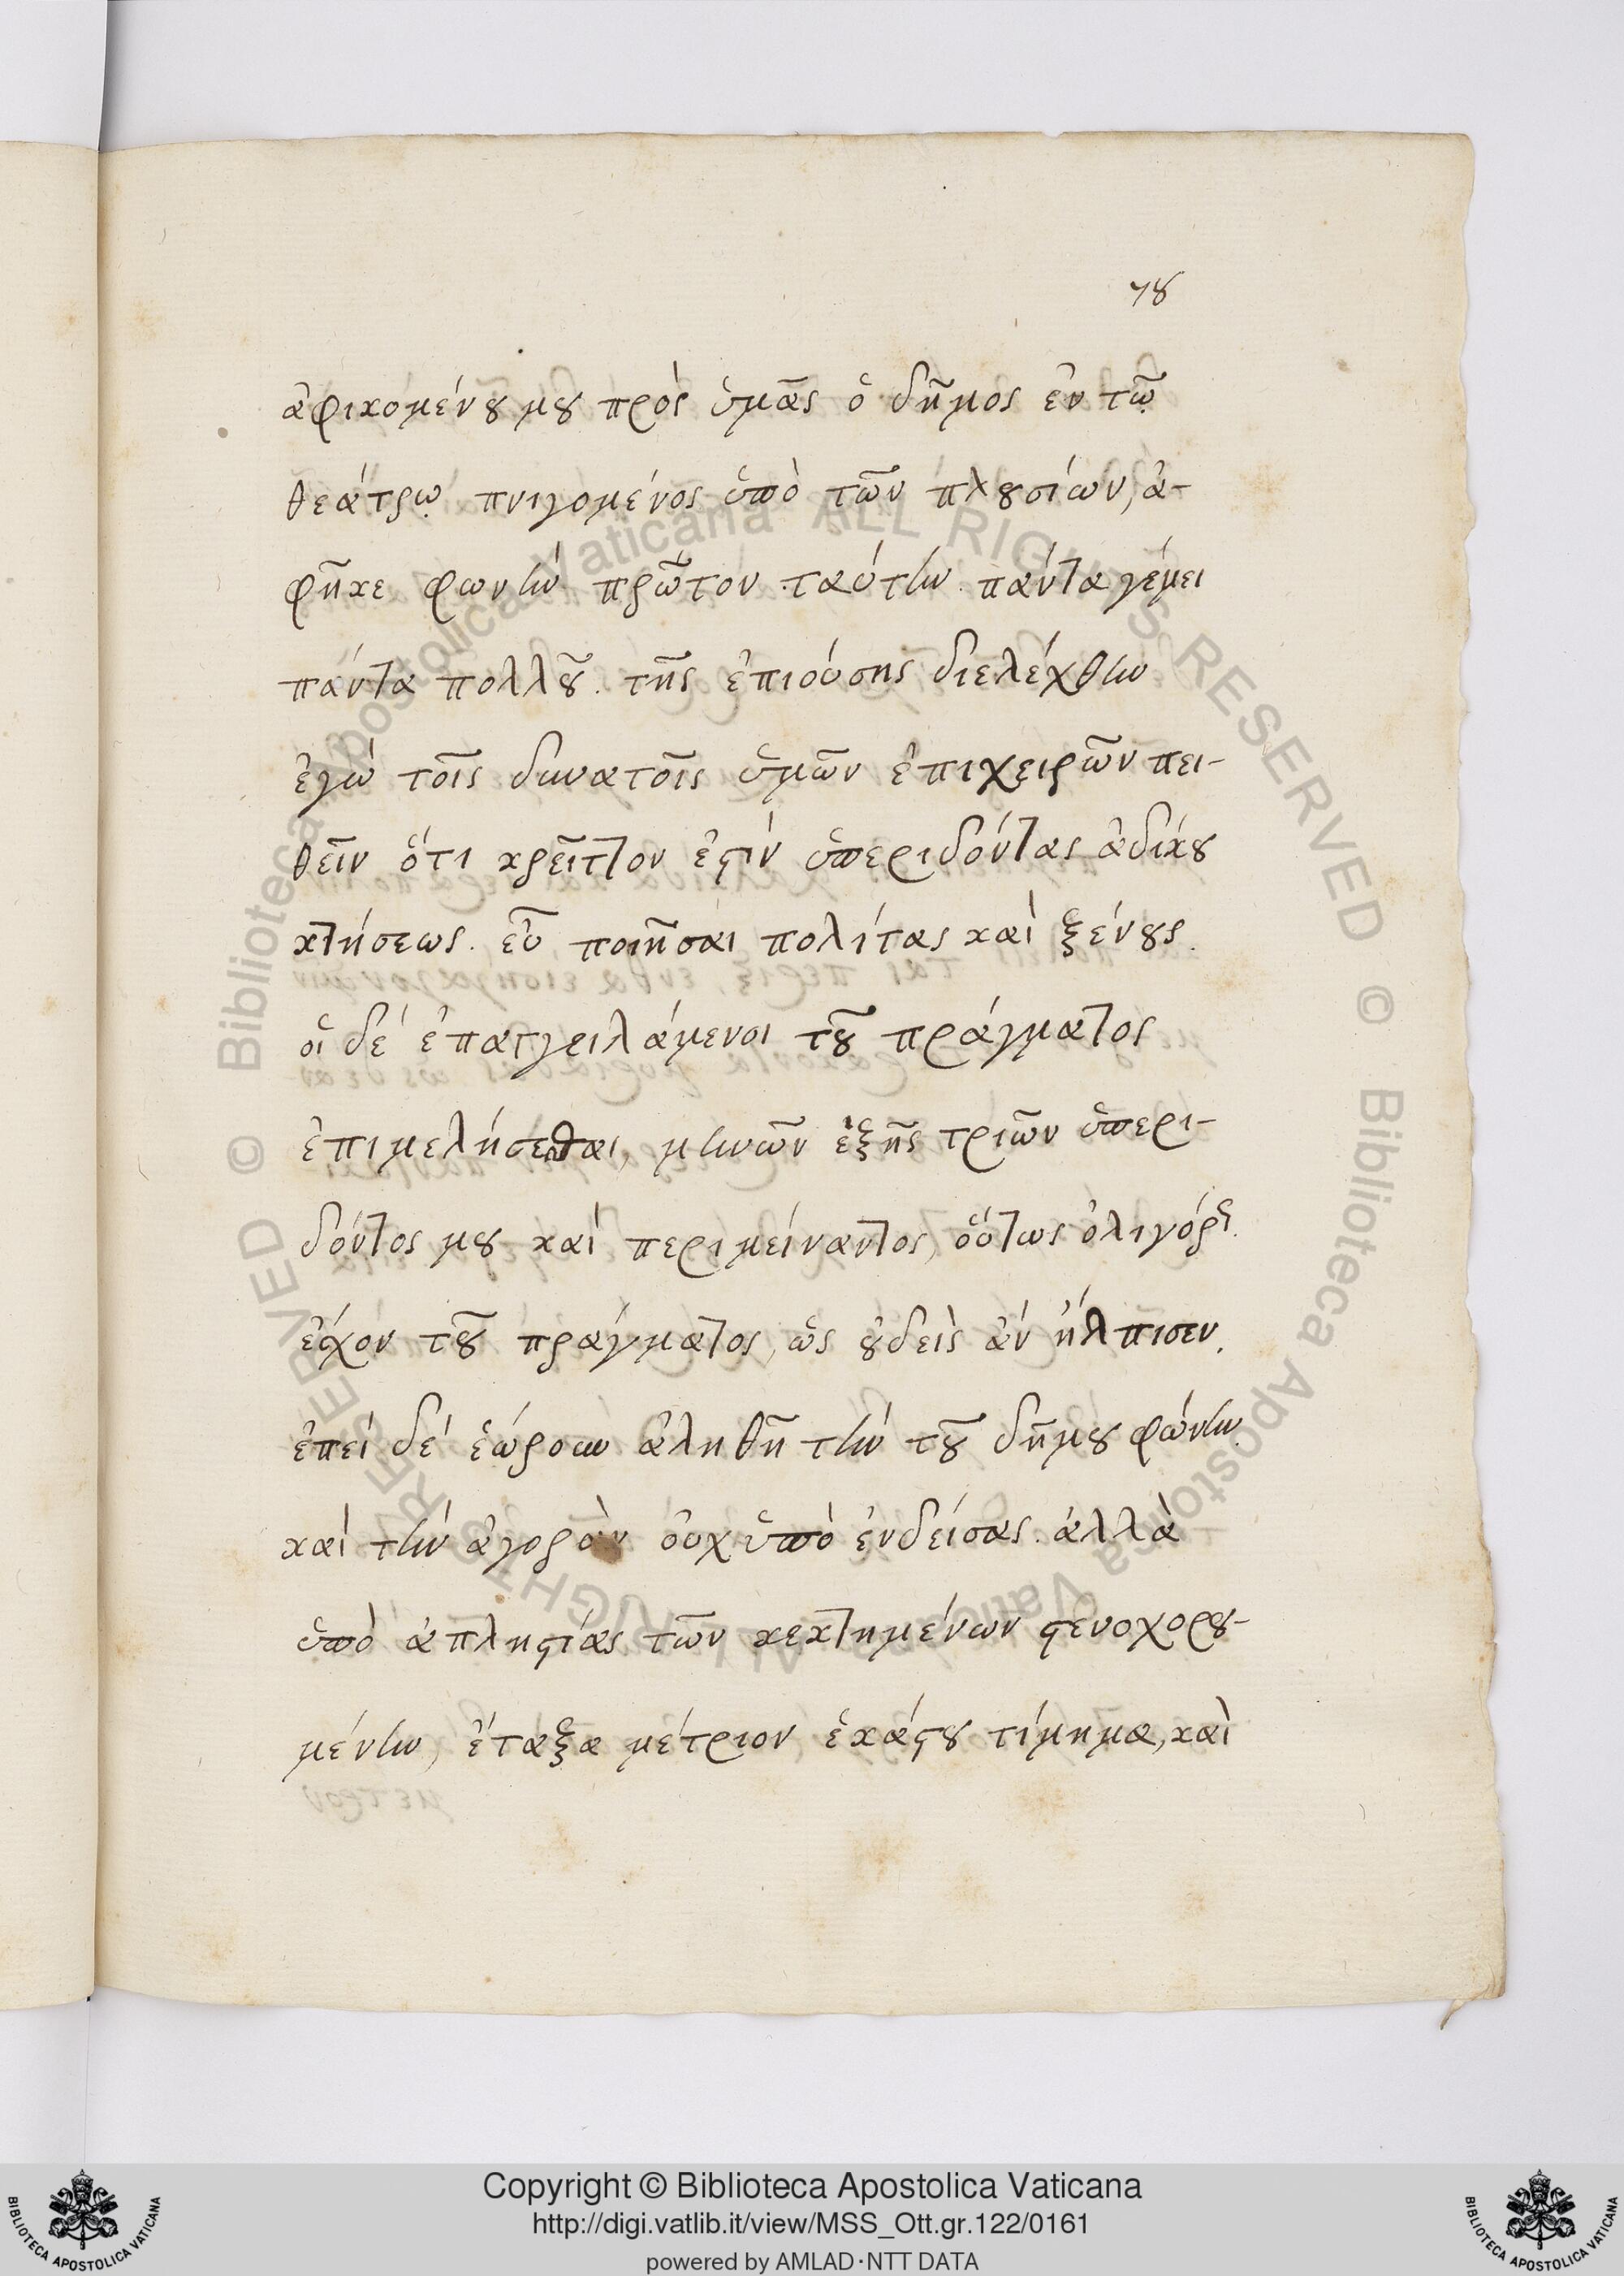 78
ἀφικομένου μου πρὸς ὑμᾶς ὁ δῆμος ἐν τῷ
θεάτρῳ πνιγομένος ὑπὸ τῶν πλουσίων, ἀ-
φῆκε φωνὴν πρῶτον ταύτην. πάντα γέμει
πάντα πολλοῦ. τῆς ἐπιούσης διελέχθην
ἐγὼ τοῖς δυνατοῖς ὑμῶν ἐπιχειρῶν πεί-
θειν ὅτι κρεῖττον ἐστὶν ὑπεριδόντας ἀδίκου
κτήσεως. εὖ ποιῆσαι πολίτας καὶ ξένους.
οἱ δὲ ἐπαγγειλάμενοι τοῦ πράγματος
ἐπιμελήσεσθαι, μηνῶν ἑξῆς τριῶν ὑπερι-
δόντος μου καὶ περιμείναντος, οὕτως ὀλιγόρως
εἶχον τοῦ πράγματος, ὡς οὐδεὶς ἂν ἤλπισεν.
ἐπεὶ δὲ ἑώρων ἀληθῆ τὴν τοῦ δήμου φώνην.
καὶ τὴν ἀγορὰν οὐχ ὑπὸ ἐνδείας. ἀλλὰ
ὑπὸ ἀπληστίας τῶν κεκτημένων στενοχορου-
μένην, ἔταξα μέτριον ἑκάστου τίμημα, καὶ
Copyright © Biblioteca Apostolica Vaticana
http://digi.vatlib.it/view/MSS_Ott.gr.122/0161
powered by AMLAD·NTT DATA